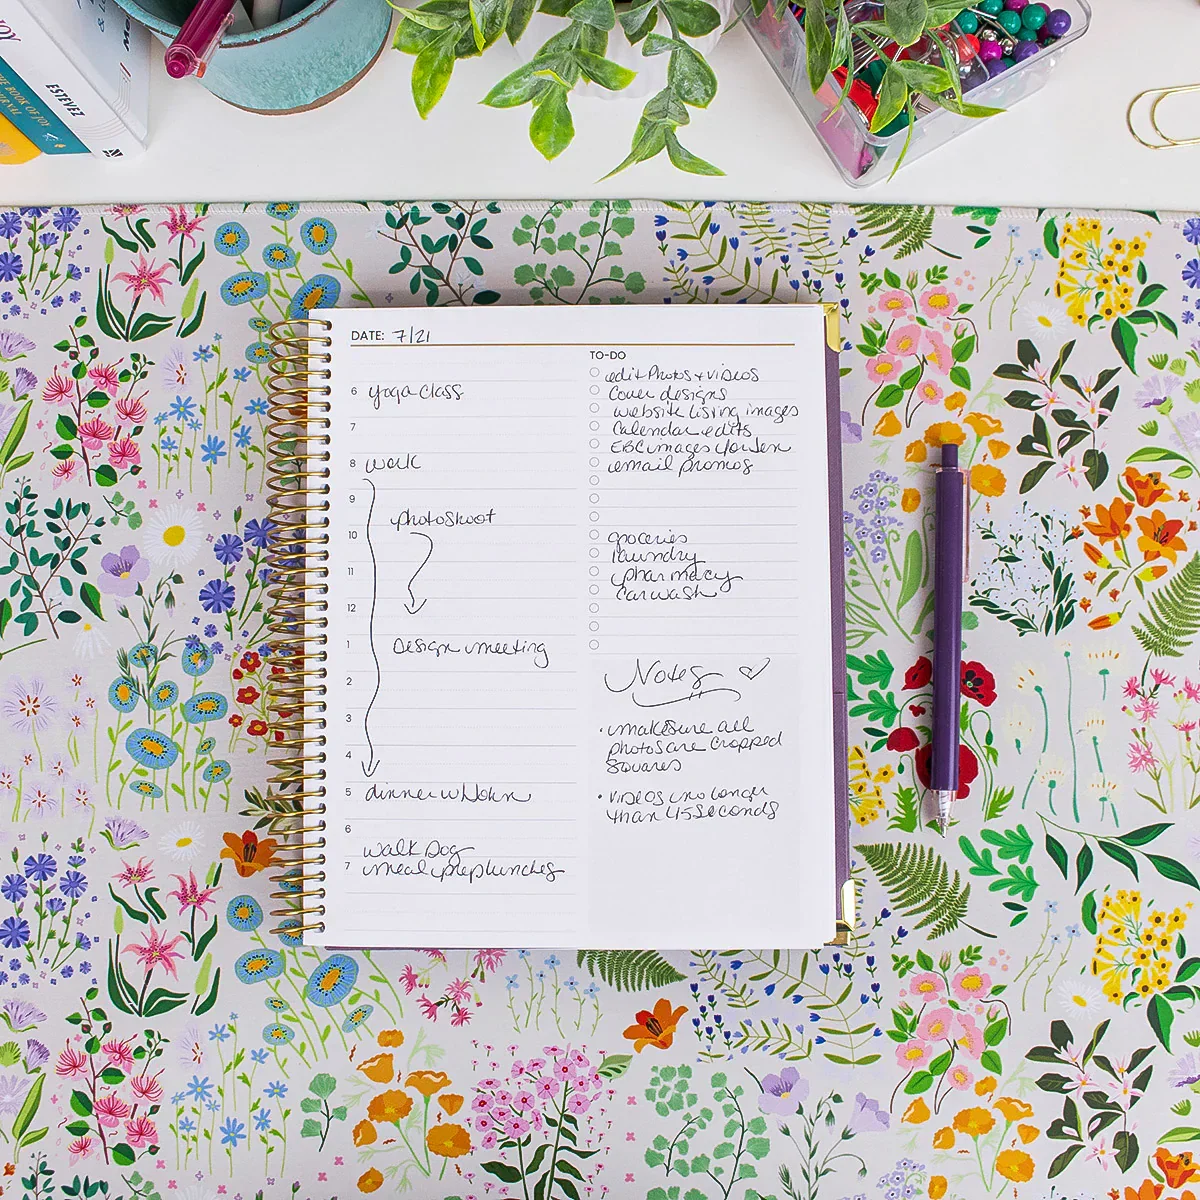 JOY
THE BOOK OF JOY
JOURNAL
ESTEVEZ
DATE: 7/21
6 yoga class
7
8 walk
9
photoshoot
10
11
12
1 Design meeting
2
3
4
5 dinner w/John
6
walk Dog
7 meal prep lunches
TO-DO
edit Photos + ViDEOS
Cover designs
website listing images
Calendar edits
EBC images
email promos
groceries
laundry
pharmacy
car wash
Notes
• make sure all
photos are cropped
squares
• ViDEOS no longer
than 45 seconds